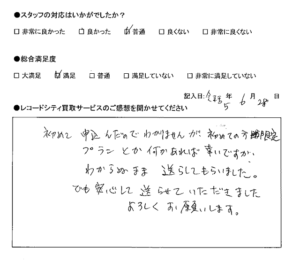 ●スタッフの対応はいかがでしたか？
□非常に良かった □良かった ☑普通 □良くない □非常に良くない
●総合満足度
□大満足 ☑満足 □普通 □満足していない □非常に満足していない
記入日：令和5年6月28日
●レコードシティ買取サービスのご感想を聞かせてください
初めて申込んだのでわかりませんが、初めての方限定
プランとか何かあれば幸いですが、
わからぬまま送らしてもらいました。
でも安心して送らせていただきました
よろしくお願いします。